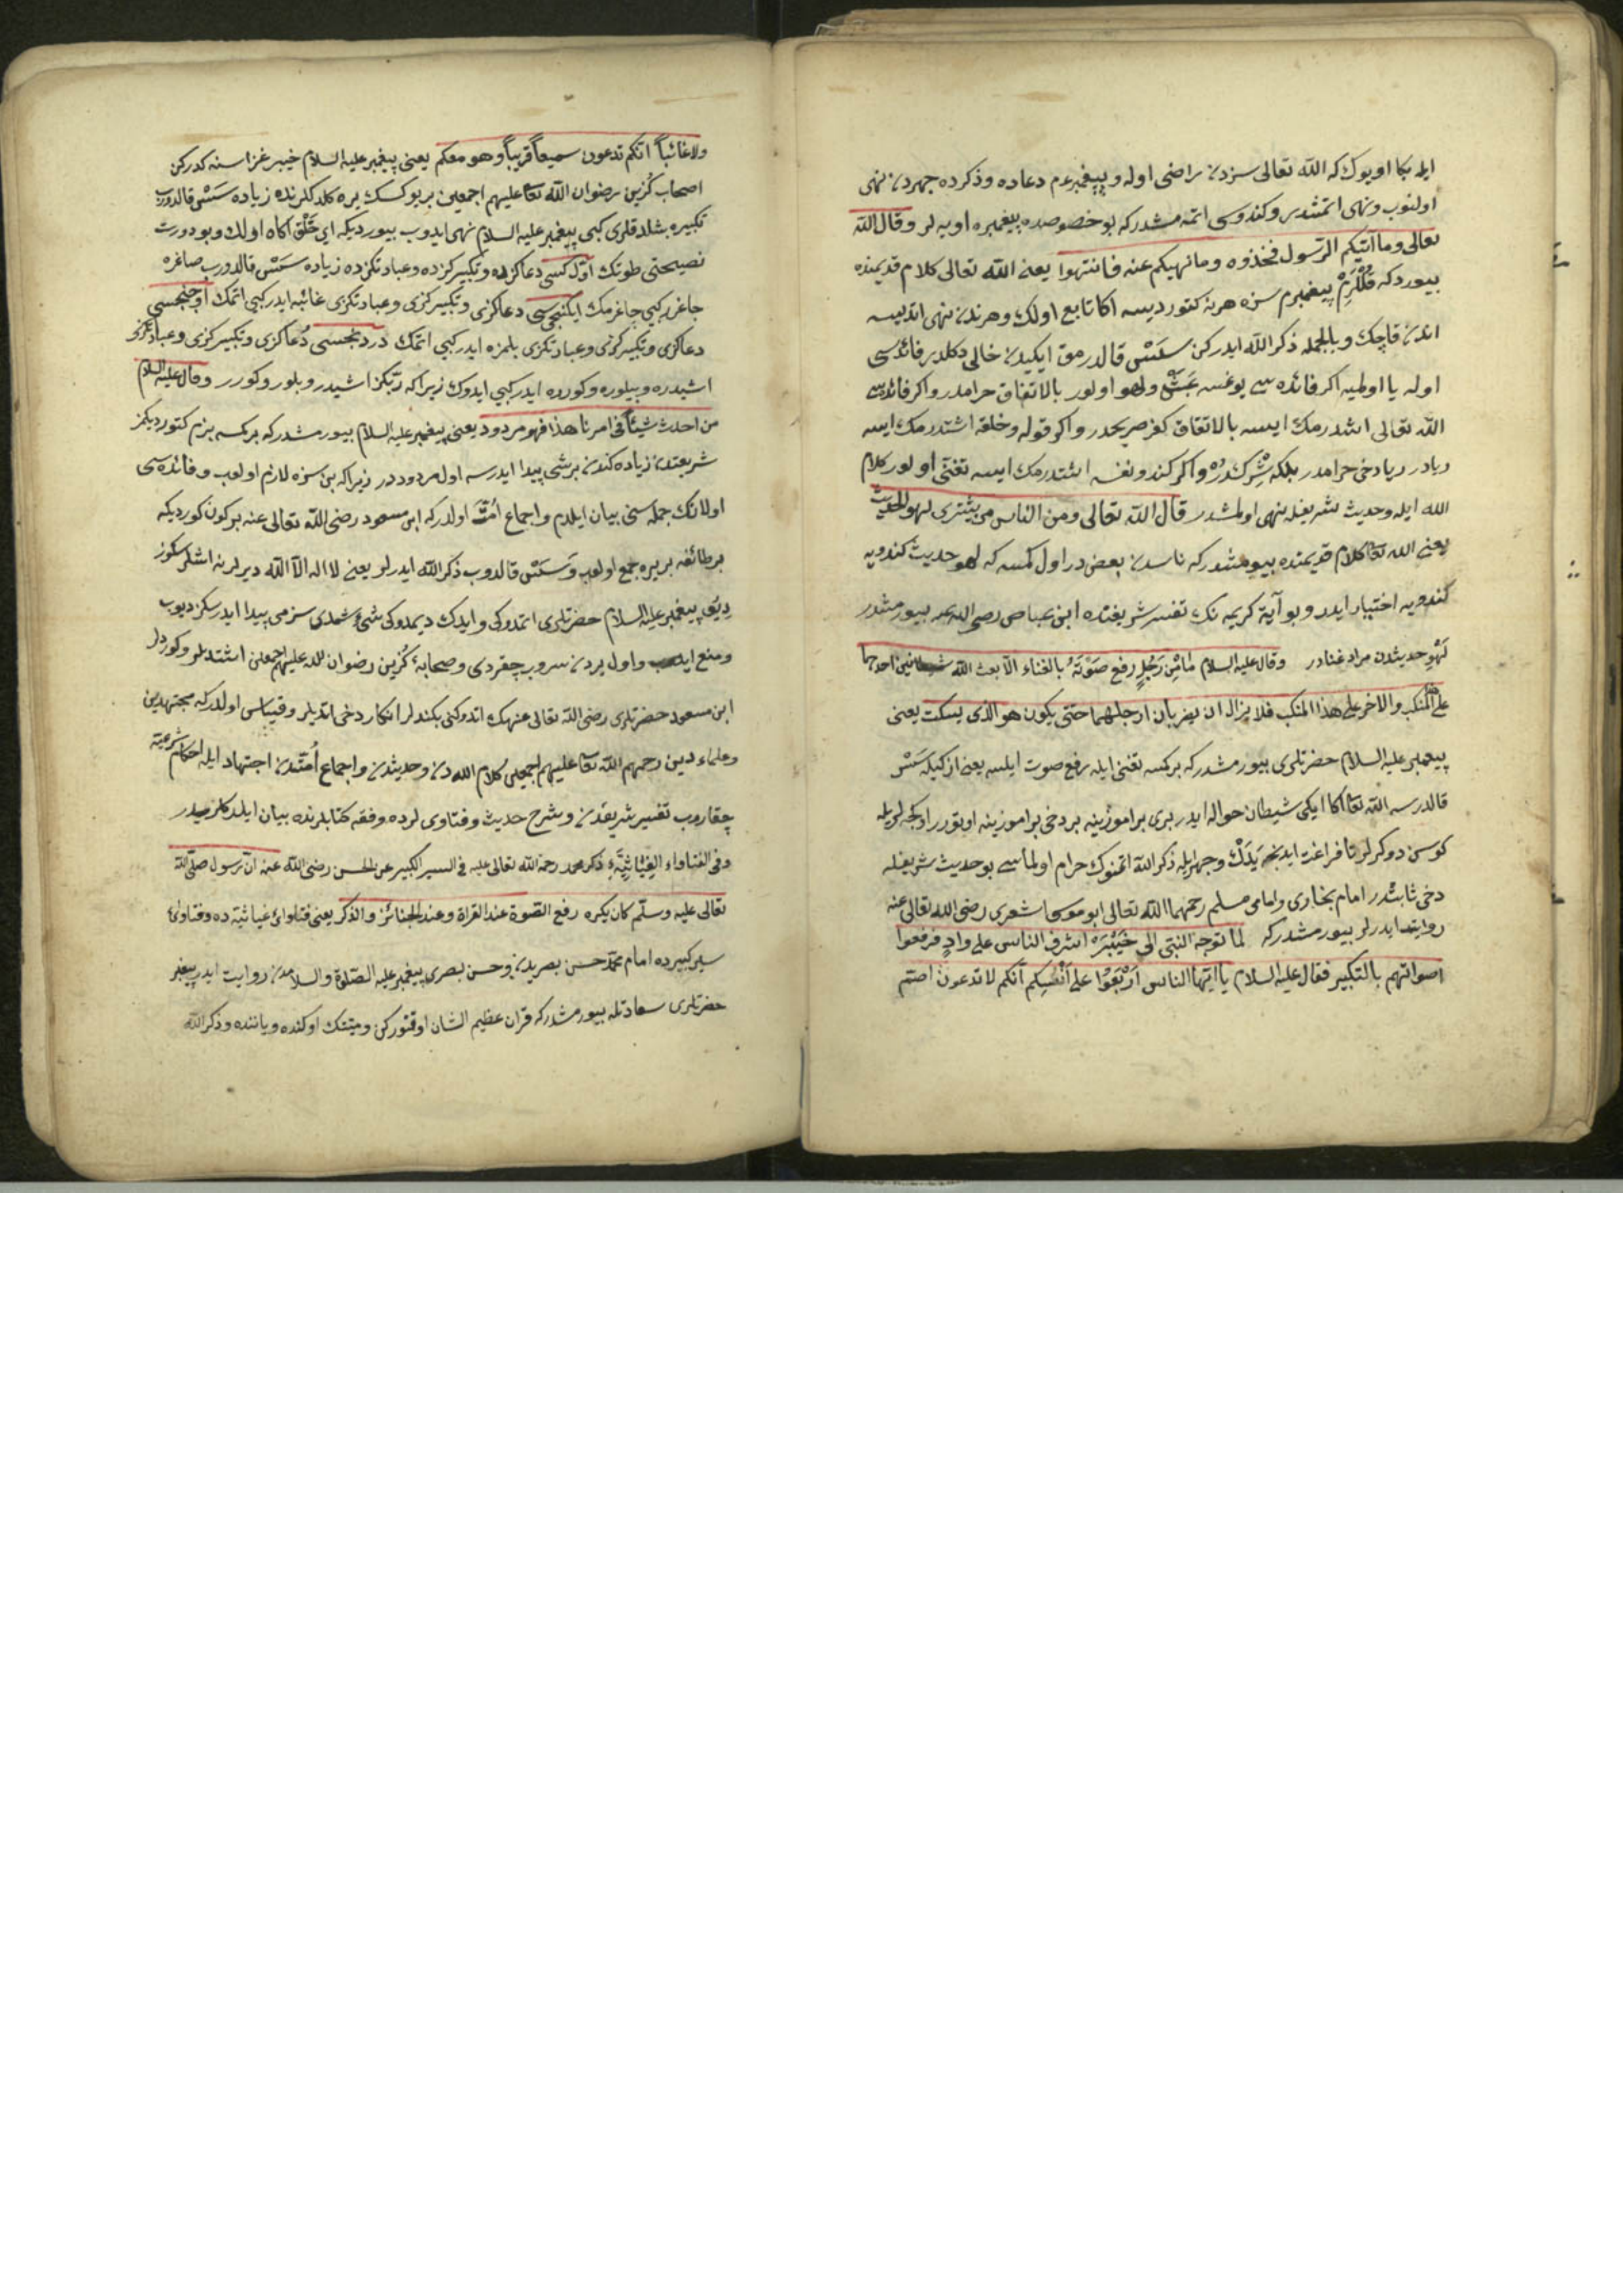 ايله بكا اويوك كه الله تعالى سزدن راضى اوله و پيغمبرم دعاده وذكرده جهردن نهى
اولنوب ونهى اتمشدر وكندوسى اتمه مشدر كه بو خصوصده پيغمبره اويه لر وقال الله
تعالى وما آتيكم الرسول فخذوه وما نهيكم عنه فانتهوا يعنى الله تعالى كلام قديمنده
بيورد كه قللرم پيغمبرم سزه هر نه كتورديسه اكا تابع اولك وهرندن نهى اتديسه
اندن قاچك وبالجمله ذكر الله ايدركن سسى قالدرمق ايكيدن خالى دكلدر فائده سى
اوله يا اوليه اكر فائده سى يوغسه عبث ولهو اولور بالاتفاق حرامدر واكر فائده سى
الله تعالى اشدرمك ايسه بالاتفاق كفر صريحدر واكر قوله وخلقه اشتدرمك ايسه
ريادر ريا دخى حرامدر بلكه شركدر واكر كندو نفسه اشتدرمك ايسه تغنى اولور كلام
الله ايله وحديث شريفله نهى اولمشدر قال الله تعالى ومن الناس من يشترى لهو الحديث
يعنى الله تعا كلام قديمنده بيورمشدر كه ناسدن بعضى در اول كمسه كه لهو حديث كندويه
كندويه اختيار ايدر وبو آية كريمه نك تفسير شريفنده ابن عباس رضى الله عنه بيورمشدر
لهو حديثدن مراد غنادر وقال عليه السلام ما من رجل رفع صوته بالغناء الا بعث الله شيطانين احدهما
على هذا المنكب والاخر على هذا المنكب فلا يزال ان يضربان ارجلهما حتى يكون هو الذى يسكت يعنى
پيغمبر عليه السلام حضرتلرى بيورمشدر كه بر كسه تغنى ايله رفع صوت ايلسه يعنى ازكيله سس
قالدرسه الله تعا اكا ايكى شيطان حواله ايدر برى بر اموزينه بر دخى بر اموزينه اوتورر اوكجه لريله
كوسن دوكرلر تا فراغت ايدنجه يدك وجهر ايله ذكر الله اتمنوك حرام اولماسى بو حديث شريفله
دخى ثابتدر امام بخارى وامام مسلم رحمهما الله تعالى ابو موسى اشعرى رضى الله تعالى عنه
روايت ايدرلر بيورمشدر كه لما توجه النبى الى خيبر اشرف الناس على واد فرفعوا
اصواتهم بالتكبير فقال عليه السلام يا ايها الناس اربعوا على انفسكم انكم لا تدعون اصم
ولا غائبا انكم تدعون سميعا قريبا وهو معكم يعنى پيغمبر عليه السلام خيبر غزاسنه كدركن
اصحاب كزين رضوان الله تعا عليهم اجمعين بر يوكسك يره كلدكلرنده زياده سس قالدوروب
تكبيره بشلدقلرى كبى پيغمبر عليه السلام نهى ايدوب بيورديكه اى خلق اكاه اولك وبو دورت
نصيحتى طوتك اول كسى دعاكزده وتكبيركزده وعبادتكزده زياده سس قالدوروب صاغره
چاغرر كبى چاغرمك ايكنجى سى دعاكزى وتكبيركزى وعبادتكزى غائبه ايدر كبى اتمك اوچنجسى
دعاكزى وتكبيركزى وعبادتكزى بلمزه ايدر كبى اتمك دردنجسى دعاكزى وتكبيركزى وعبادتكزى
اشيدره وبيلوره وكوروه ايدر كبى ايدوك زيرا كه ربكز اشيدر وبلور وكورر وقال عليه السلام
من احدث شيئا فى امرنا هذا فهو مردود يعنى پيغمبر عليه السلام بيورمشدر كه بر كسه بزم كتورديكمز
شريعتدن زياده كندن بر شى پيدا ايدرسه اول مردوددر زيرا كه بن سزه لازم اولوب وفائده سى
اولانك جمله سنى بيان ايلدم واجماع امت اولدر كه ابن مسعود رضى الله تعالى عنه بر كون كورديكه
بر طائفه بر يره جمع اولوب وسسى قالدوب ذكر الله ايدرلر يعنى لا اله الا الله ديرلر نه اشلرسكوز
ديو پيغمبر عليه السلام حضرتلرى اتمدوكى وايدك ديمدوكى شيئ شمدى سزمى پيدا ايدرسكز ديوب
ومنع ايدوب واول يردن سوروب چقردى وصحابهٔ كزين رضوان الله عليهم اجمعين اشتديلر وكورديلر
ابن مسعود حضرتلرى رضى الله تعالى عنهك اتدوكنى بكنديلر انكار دخى اتمديلر وقياس اولدر كه مجتهدين
وعلماء دين رحمهم الله تعا عليهم اجمعين كلام الله دن وحديثدن واجماع امتدن اجتهاد ايله احكام شرعيه
چقاروب تفسير شريفدن وشرح حديث وفتاوى لرده وفقه كتابلرنده بيان ايلدكلر
وفى الفتاواء الغياثية ذكر محمد رحمة الله تعالى عليه فى السير الكبير عن الحسن رضى الله عنه ان رسول صلى الله
تعالى عليه وسلم كان يكره رفع الصوة عند القراة وعند الجنائز والذكر يعنى فتاوائ غياثيه ده وفتاوئ
سير كبيرده امام محمد حسن بصريدن وحسن بصرى پيغمبر عليه الصلوة والسلامدن روايت ايدر پيغمبر
حضرتلرى سعادتله بيورمشدر كه قران عظيم الشان اوقنوركن وميتك اوكنده وياننده وذكر الله